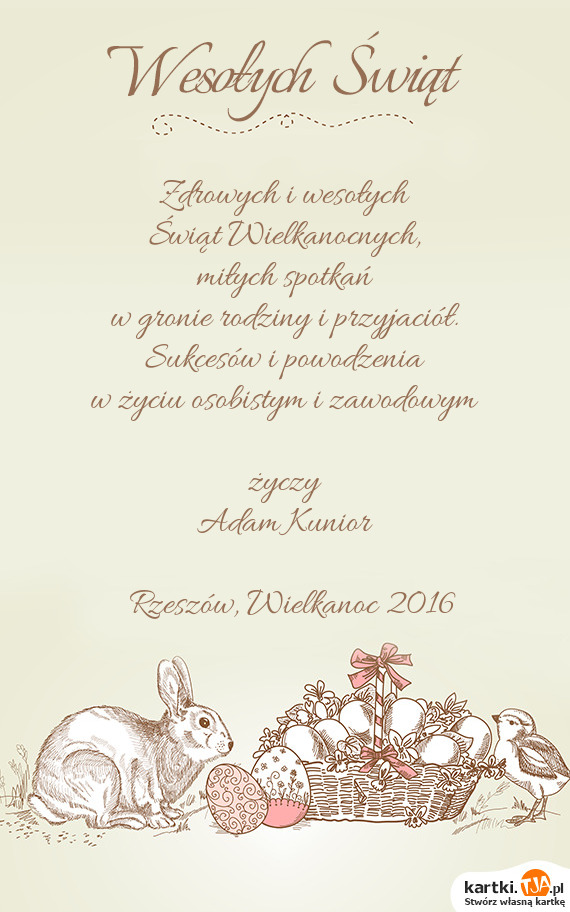 Wesołych Świąt
Zdrowych i wesołych
Świąt Wielkanocnych,
miłych spotkań
w gronie rodziny i przyjaciół.
Sukcesów i powodzenia
w życiu osobistym i zawodowym
życzy
Adam Kunior
Rzeszów, Wielkanoc 2016
kartki.TJA.pl
Stwórz własną kartkę